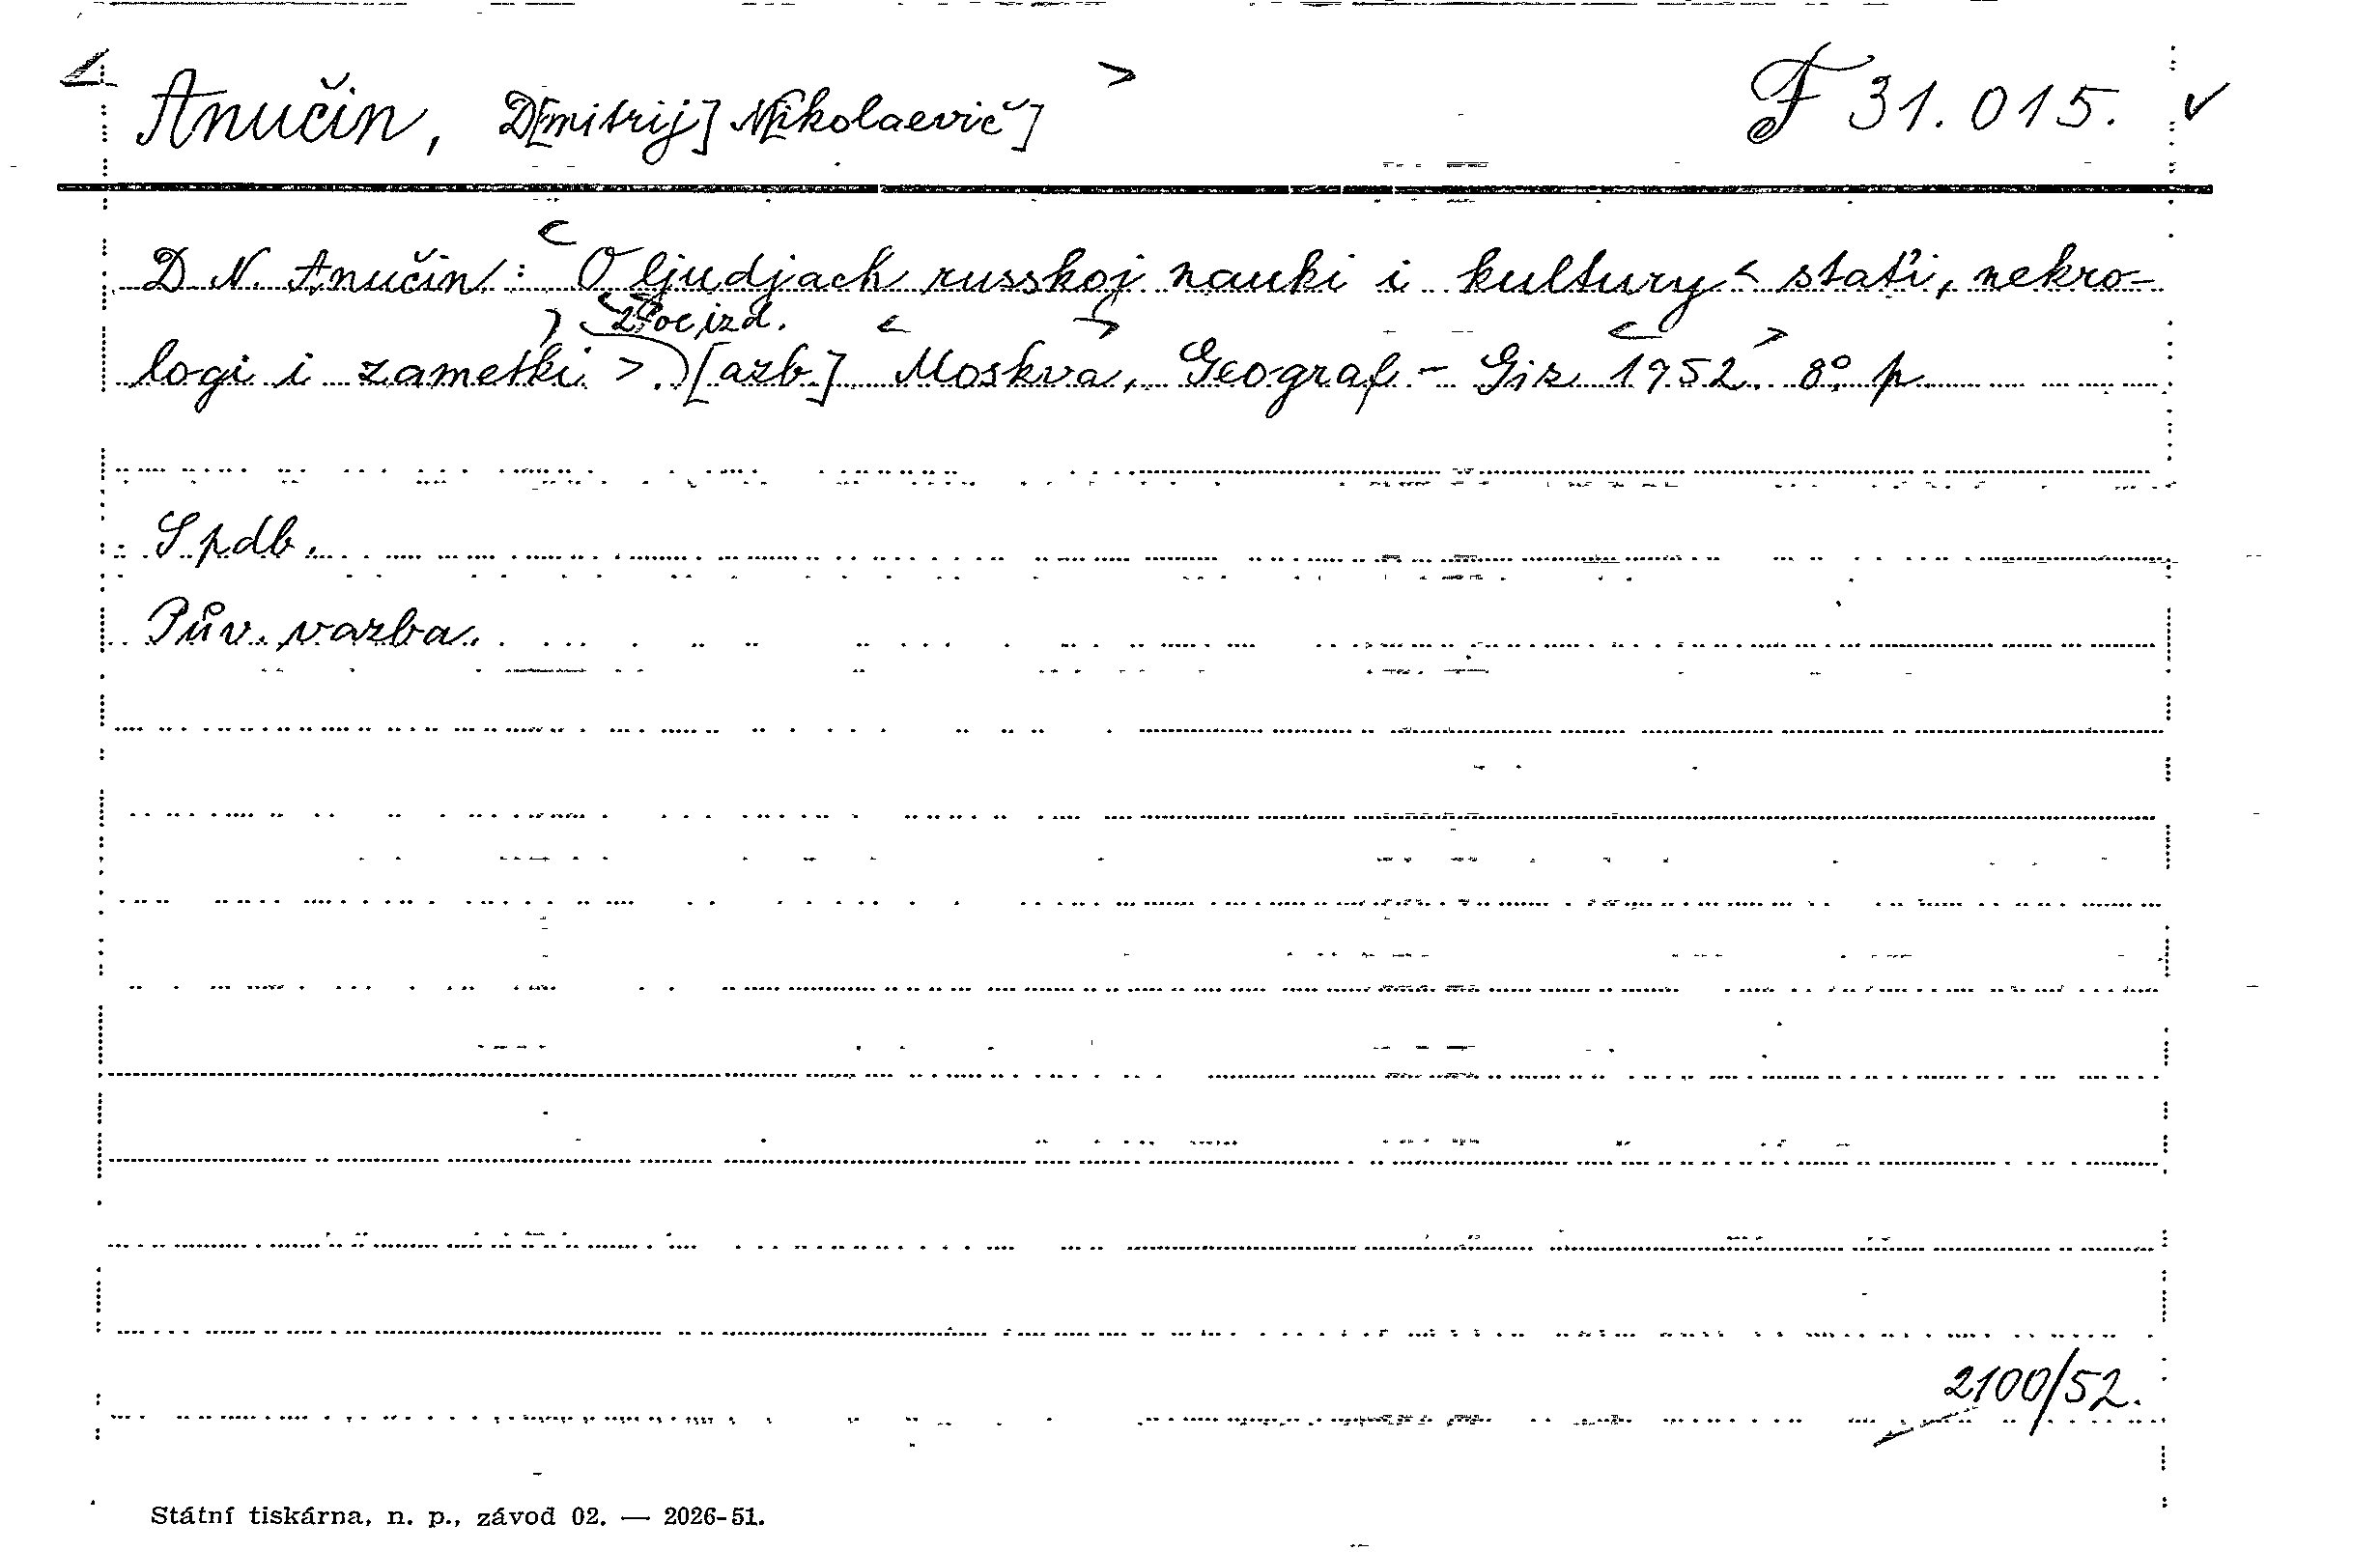 < Anučin, D[mitrij] N[ikolaevič] > F 31.015. ✓
D. N. Anučin: < O ljudjach russkoj nauki i kultury < stat'i, nekro-
izd.
logi i zametki >. [azb.] < Moskva >, Geograf-Giz < 1952 >. 8°. p.
S pdb.
Pův. vazba.
2100/52.
Státní tiskárna, n. p., závod 02. — 2026-51.